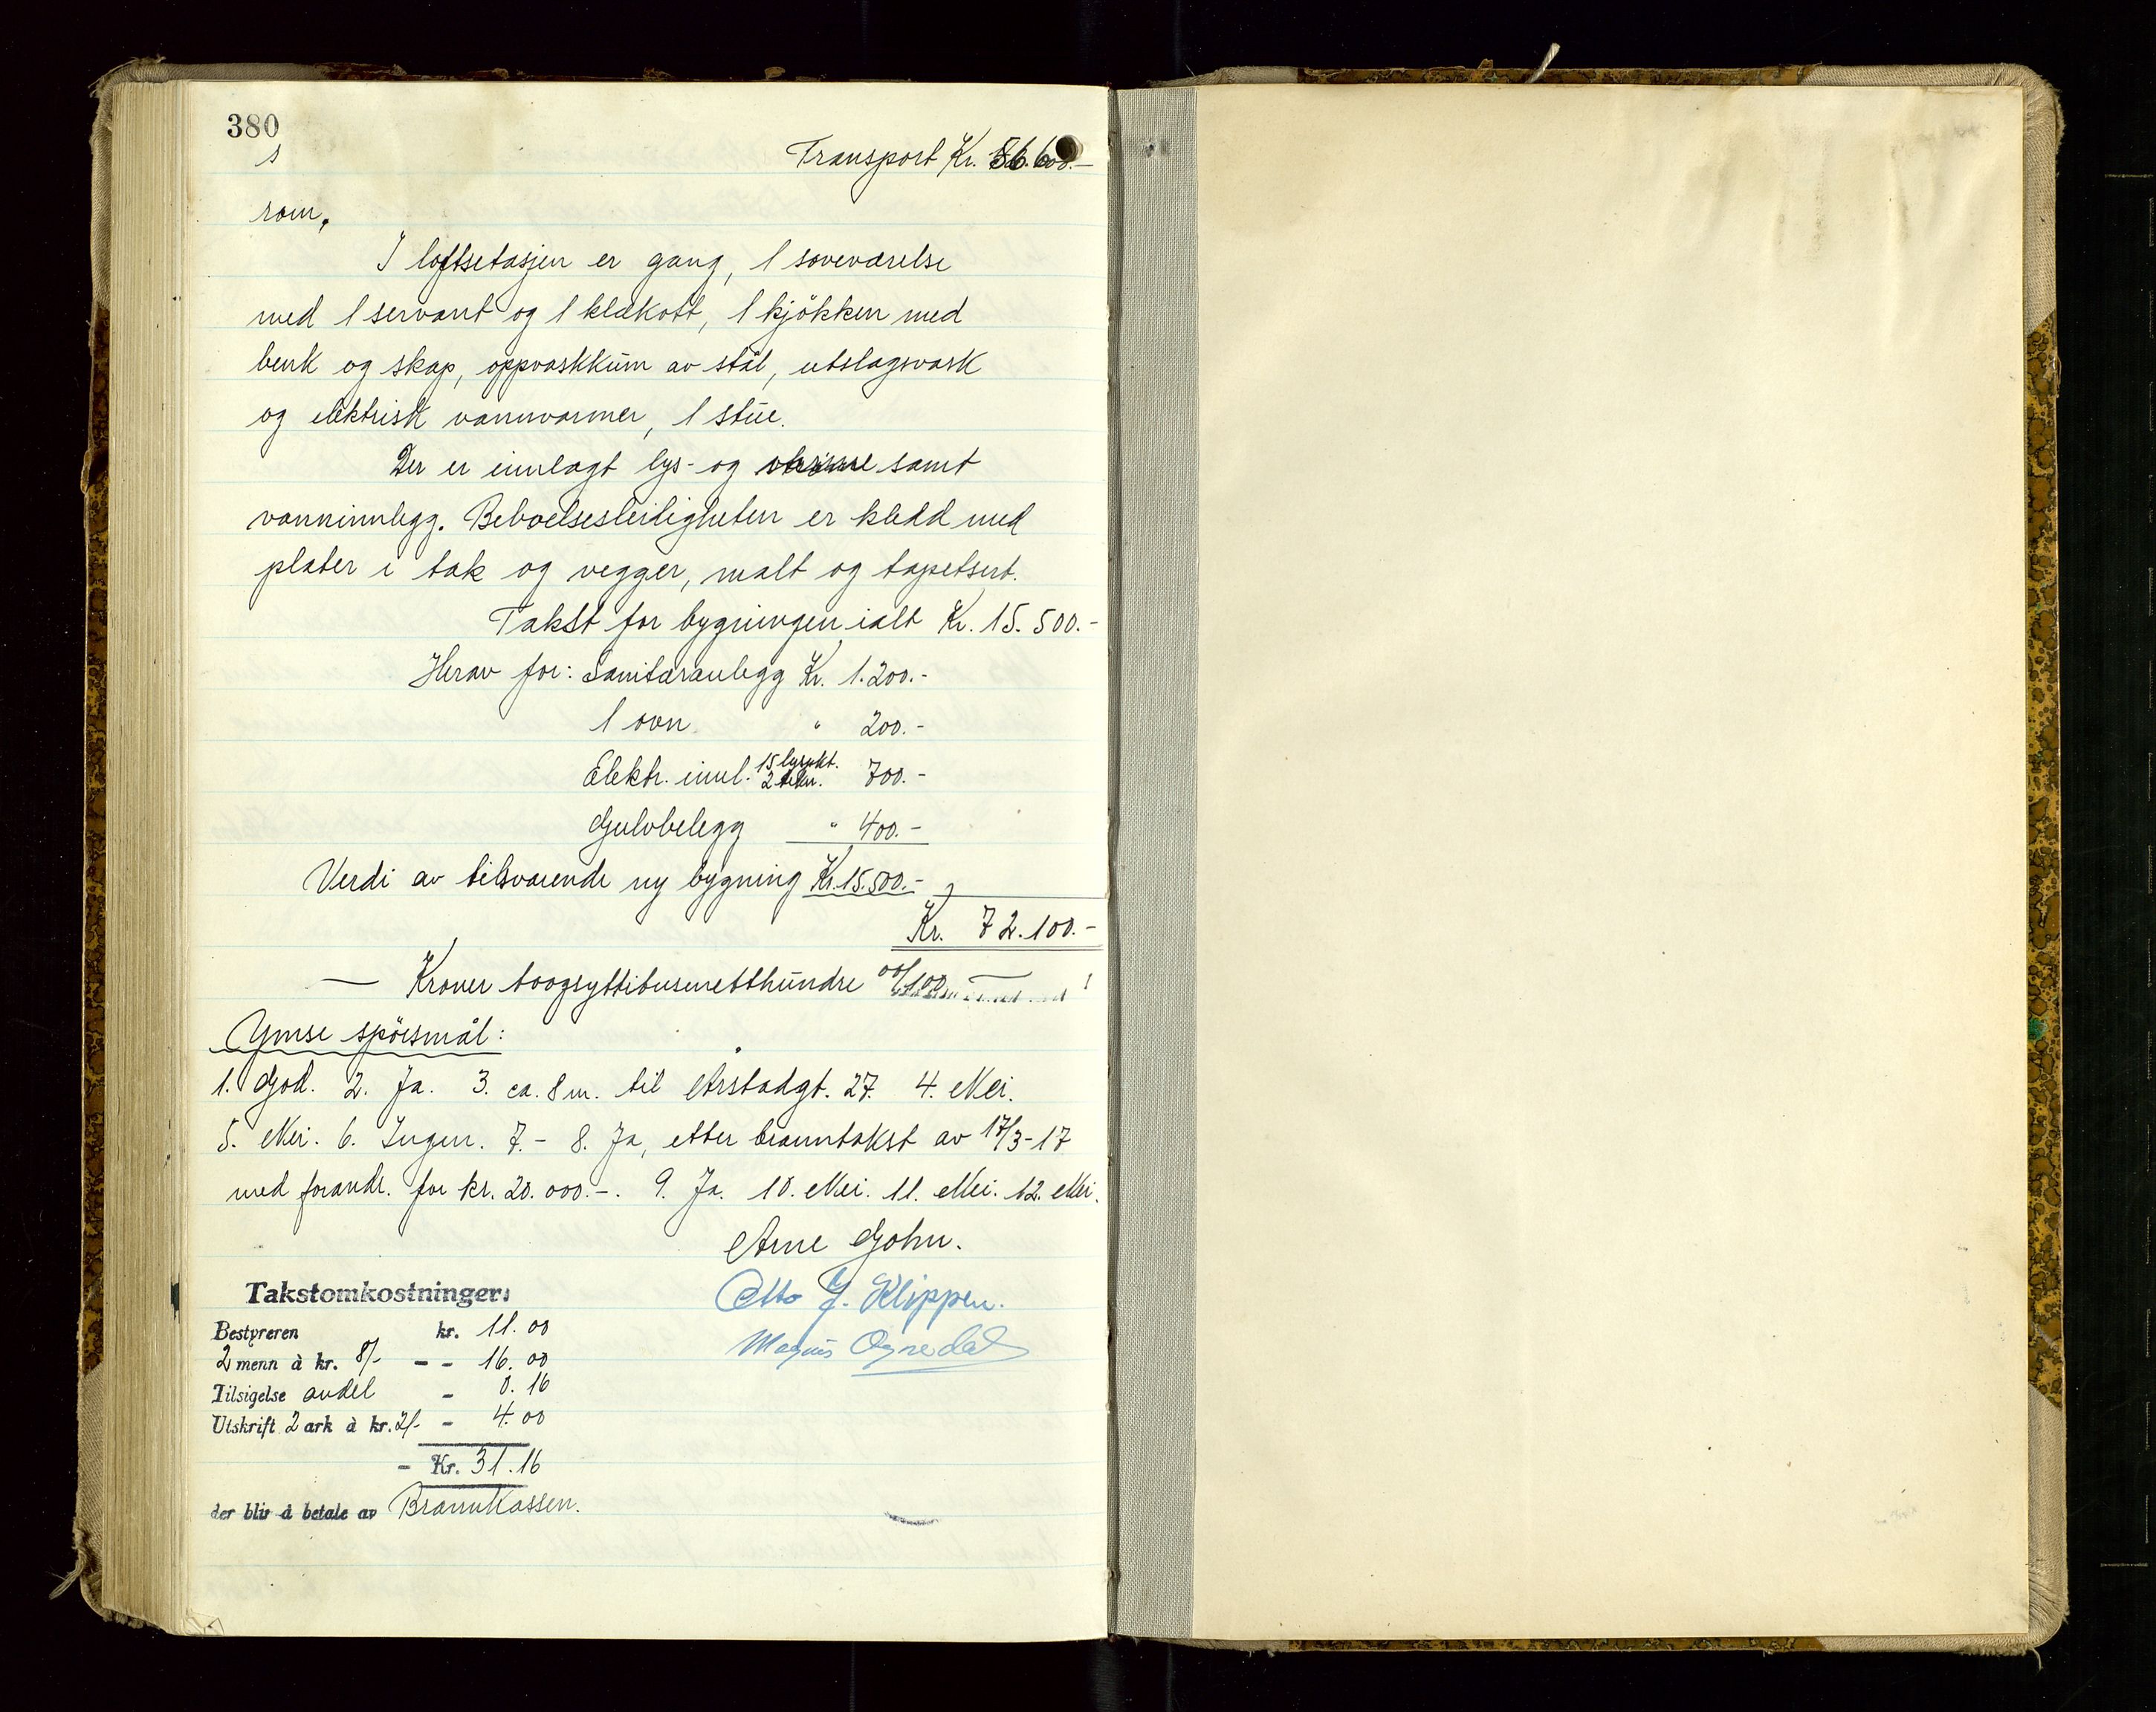 380
Transport Kr. 56.600.-
rom.
I loftsetasjen er gang, 1 soveværelse
med 1 servant og 1 klækott, 1 kjökken med
benk og skap, oppvaskkum av stål, utslagsvask
og elektrisk vannvarmer, 1 stue.
Der er innlagt lys- og samt
vanninnlegg. Beboelsesleiligheten er kledd med
plater i tak og vegger, malt og tapetsert.
Takst for bygningen ialt Kr. 15.500.-
Herav for: Sanitæranlegg Kr. 1.200.-
1 ovn " 200.-
Elektr. innl. 15 lyspkt. 700.-
Gulvbelegg " 400.-
Verdi av tilsvarende ny bygning Kr. 15.500.-
Kr. 72.100.-
— Kroner toogsyttitusenetthundre 00/100 —
Ymse spörsmål:
1. God. 2. Ja. 3. ca. 8 m. til Arstadgt. 27. 4. Nei.
5. Nei. 6. Ingen. 7. - 8. Ja, etter branntakst av 17/3-17
med forandr. for kr. 20.000.-. 9. Ja. 10. Nei. 11. Nei. 12. Nei.
Arne Gohn.
Otto J. Klippen.
Magnus Ognedal
Takstomkostninger:
Bestyreren kr. 11.00
2 menn à kr. 8/- - - 16.00
Tilsigelse andel - 0.16
Utskrift 2 ark à kr. 2/- - 4.00
- Kr. 31.16
der blir å betale av Brannkassen.